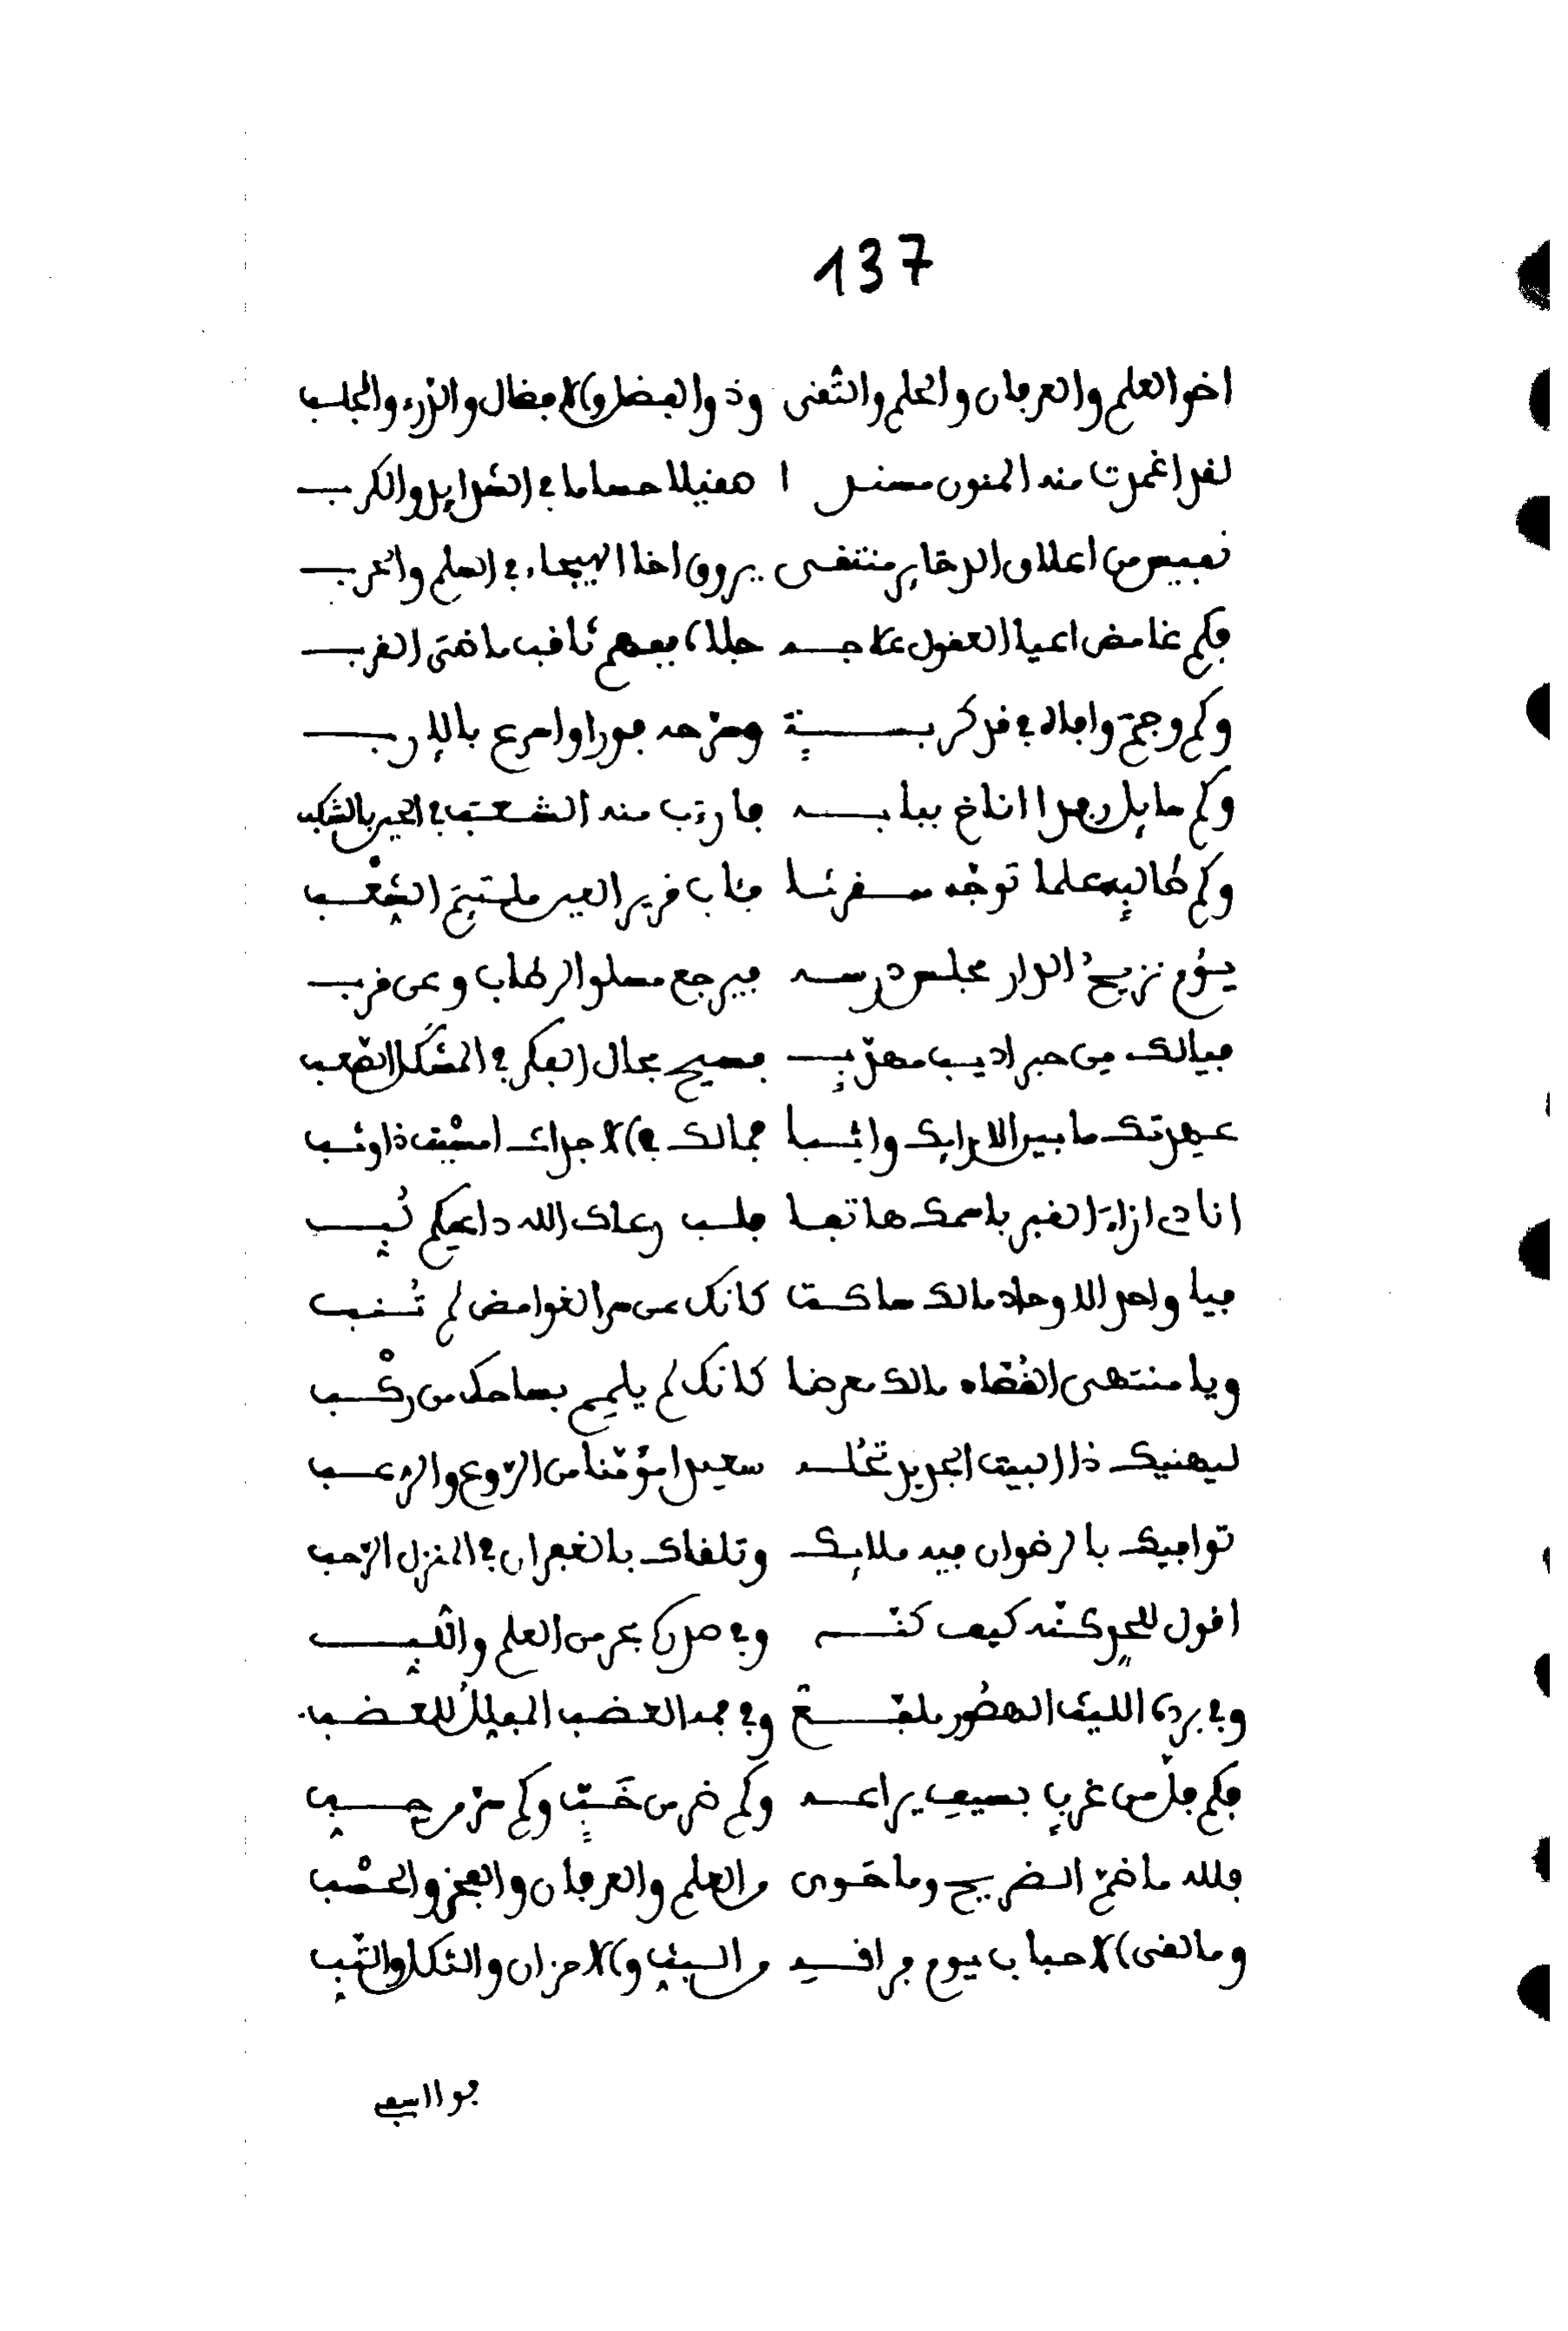 137
اخو العلم والعرفان والحلم والتّقى وذو الفضل والافضال والزّرء والجلب
لقد اغمدت منه المنون مهندا صفيلا حساما في الشدايد والكرب
نفيس من اعلاق الذخاير منتقى يروق اخا الهيجاء في السلم والحرب
فكم غامض اعيا العقول علاجه جلاه بفهم ثاقب ماضي الغرب
وكم وجمة وافاه في قد كربة فسرّحه فورا واسرع بالارب
وكم سايل رفدا اناخ ببابه فا روّب منه الشعب في الحين بالشكب
وكم طالبٍ علما توجّه سفرنا فئاب قرير العين ملتيم الشّعب
يؤم نزيح الدار مجلس درسه فيرجع مملو الوطاب وعن قرب
فيالك من حبر اديب مهذّبٍ فسيح مجال الفكر في المشكل الصّعب
عهدتك ما بين الارايك واثبا فمالك في الاجداث امسيت ذا وثب
انادي ازاء القبر باسمك هاتفا فلب رعاك الله داعيكم لُبِّ
فيا واحد الاوحاد مالك ساكتا كانك عن سر الغوامض لم تُنب
ويا منتهى القصّاد مالك معرضا كانك لم يلمم بساحك من ركْب
ليهنيك ذا البيت الجديد تحُلّه سعيدا مؤمّنا من الرّوع والرعب
توافيك بالرضوان فيه ملايك وتلقاك بالغفران في المنزل الرّحب
اقول للحدٍ كنّه كيف كنّه وفي صدره بحر من العلم واللّب
وفي برده الليث الهصور ملفّع وفي غمده العضب المفلل للعضب
فكم فلّ من غربٍ بسيف يراعه وكم ضر من خَبٍّ وكم سرّ من حب
فلله ما ضمّ الضريح وما حَوى من العلم والعرفان والفخر والحسْب
وما لقى الاحباب يوم فراقه من البث والاحزان والثكل والنّحب
فوا اسفي